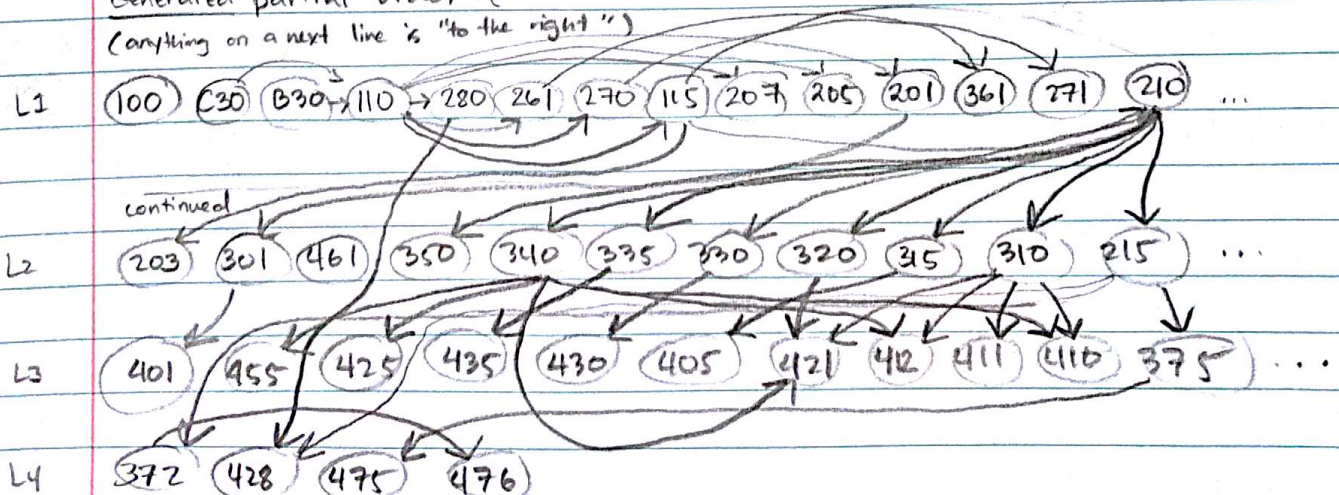 (anything on a next line is "to the right")
L1 100 C30 B30 110 280 261 270 115 207 205 201 361 271 210 ...
continued
L2 203 301 461 350 340 335 330 320 315 310 215 ...
L3 401 455 425 435 430 405 421 412 411 410 375 ...
L4 372 428 475 476